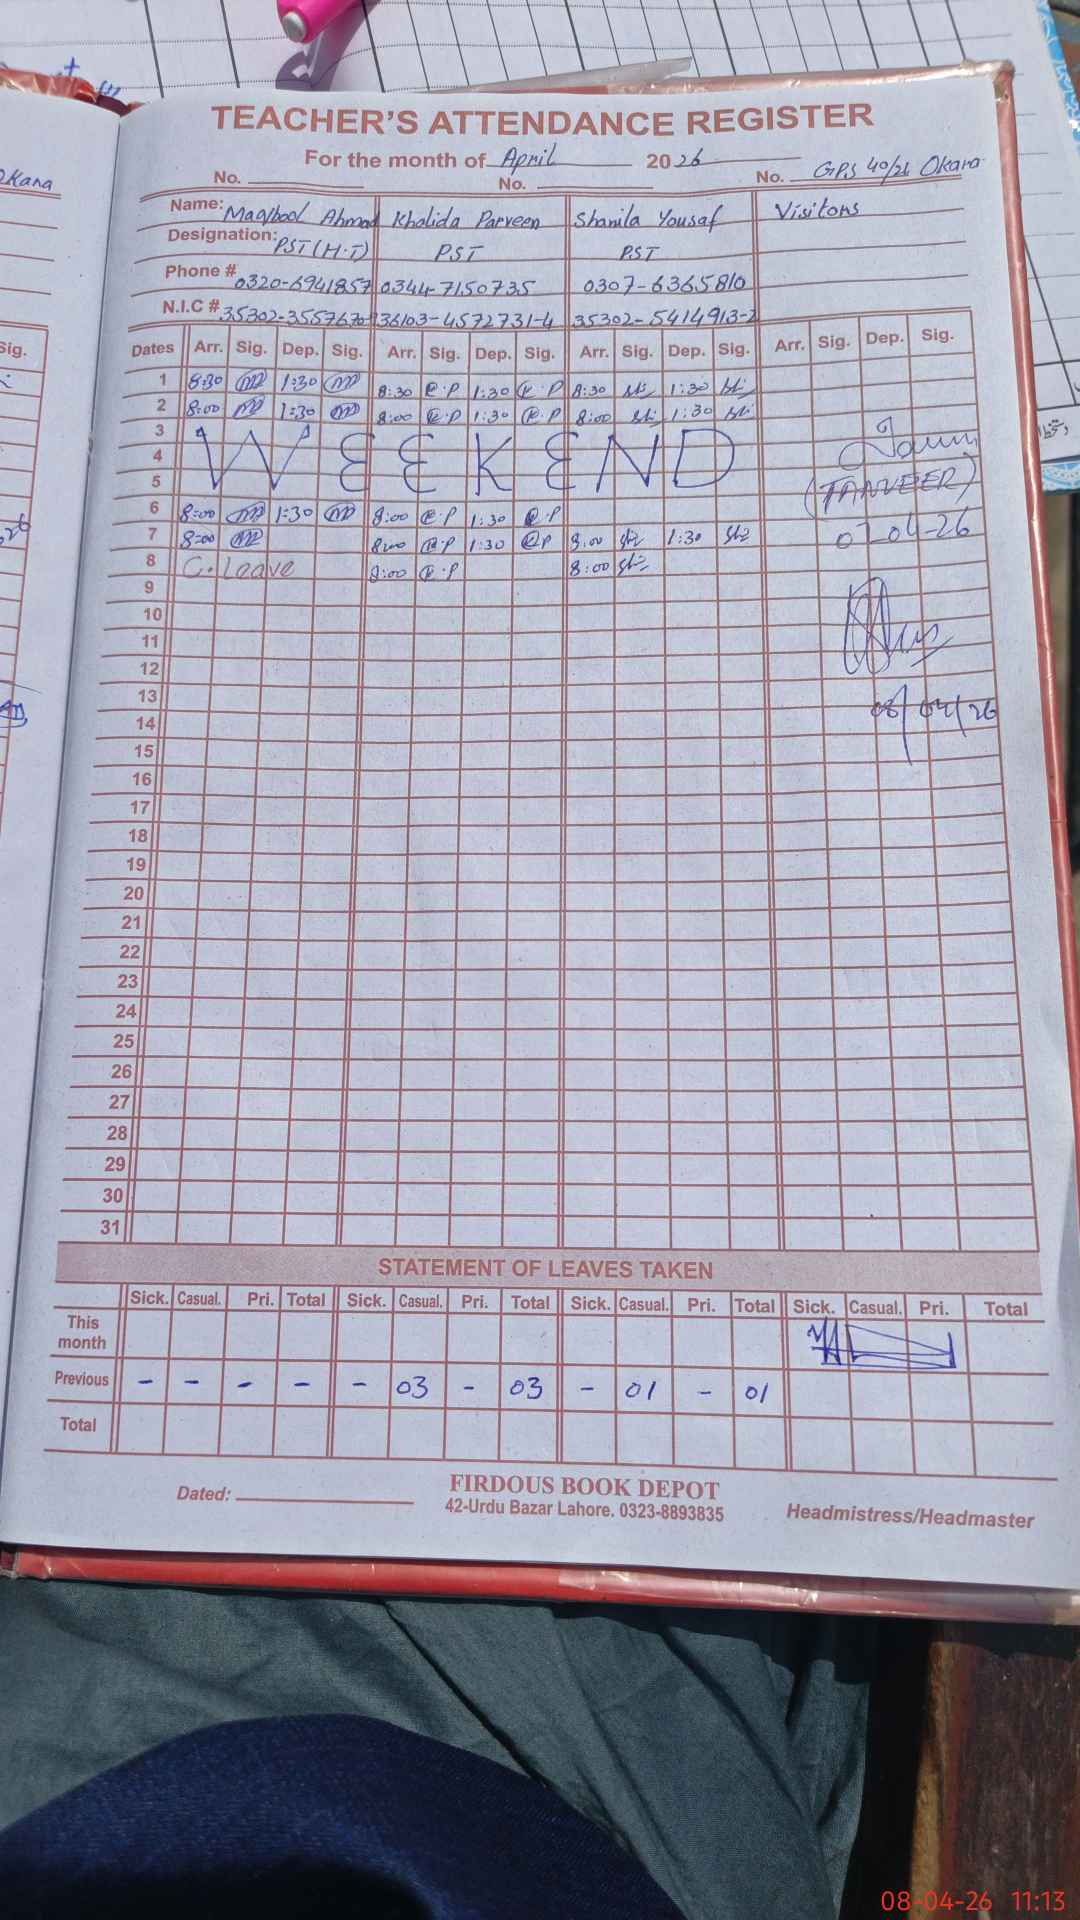 TEACHER'S ATTENDANCE REGISTER
For the month of April 2026
No. No. No. GPS 40/2L Okara
Okara
Name: Maqbool Ahmad Khalida Parveen Shanila Yousaf Visitors
Designation: PST (H.T) PST PST
Phone # 0320-6941857 0344-7150735 0307-6365810
N.I.C # 35302-3557670 36103-4572731-4 35302-5414913-2
Dates Arr. Sig. Dep. Sig. Arr. Sig. Dep. Sig. Arr. Sig. Dep. Sig. Arr. Sig. Dep. Sig.
Sig.
1 8:30 1:30 8:30 K.P 1:30 K.P 8:30 1:30
2 8:00 1:30 8:00 K.P 1:30 K.P 8:00 1:30
3
4 WEEKEND
5 (TANVEER)
6 8:00 1:30 8:00 K.P 1:30 K.P
7 8:00 8:00 K.P 1:30 K.P 8:00 1:30 07-04-26
8 C. Leave 8:00 K.P 8:00
9
10
11
12
13 08/04/26
14
15
16
17
18
19
20
21
22
23
24
25
26
27
28
29
30
31
STATEMENT OF LEAVES TAKEN
Sick. Casual. Pri. Total Sick. Casual. Pri. Total Sick. Casual. Pri. Total Sick. Casual. Pri. Total
This month
Previous - - - - - 03 - 03 - 01 - 01
Total
Dated:
FIRDOUS BOOK DEPOT
42-Urdu Bazar Lahore. 0323-8893835
Headmistress/Headmaster
08-04-26 11:13